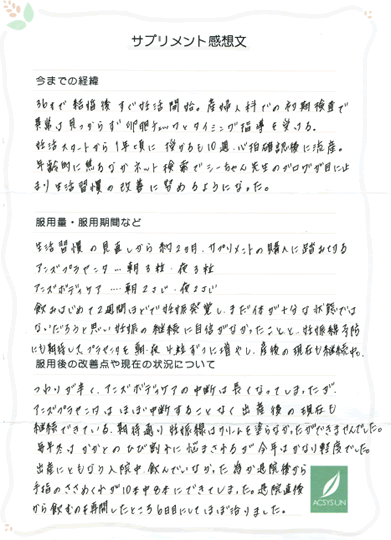 サプリメント感想文
今までの経緯
36才で結婚後すぐ妊活開始。産婦人科での初期検査で
異常は見つからず卵胞チェックとタイミング指導を受ける。
妊活スタートから1年で 授かるも10週、心拍確認後に流産。
年齢的に焦るなかネット検索でシーちゃん先生のブログが目に止
まり生活習慣の改善に努めるようになった。
服用量・服用期間など
生活習慣の見直しから約2ヶ月、サプリメントの購入に踏みきる
アンズプラセンタ…朝3粒・夜3粒
アンズボディケア…朝2さじ・夜2さじ
飲みはじめて2週間ほどで妊娠発覚し、まだ体が十分な状態では
ないだろうと思い妊娠の継続に自信がなかったことと、妊娠線予防
にも期待しプラセンタを朝・夜4粒ずつに増やし、産後の現在も継続中。
服用後の改善点や現在の状況について
つわりが辛く、アンズボディケアの中断は長くなってしまったが、
アンズプラセンタはほぼ中断することなく出産後の現在も
継続できている。期待通り妊娠線はクリームを塗らなかったができませんでした。
毎年冬はかかとのひび割れに悩まされるが今年はかなり軽度でした。
出産にともなう入院中、飲んでいなかった為か退院後から
手指のささむくれが10本中8本にできてしまった。退院直後
から飲むのを再開したところ6日目にしてほぼ治りました。
ACSYS UN